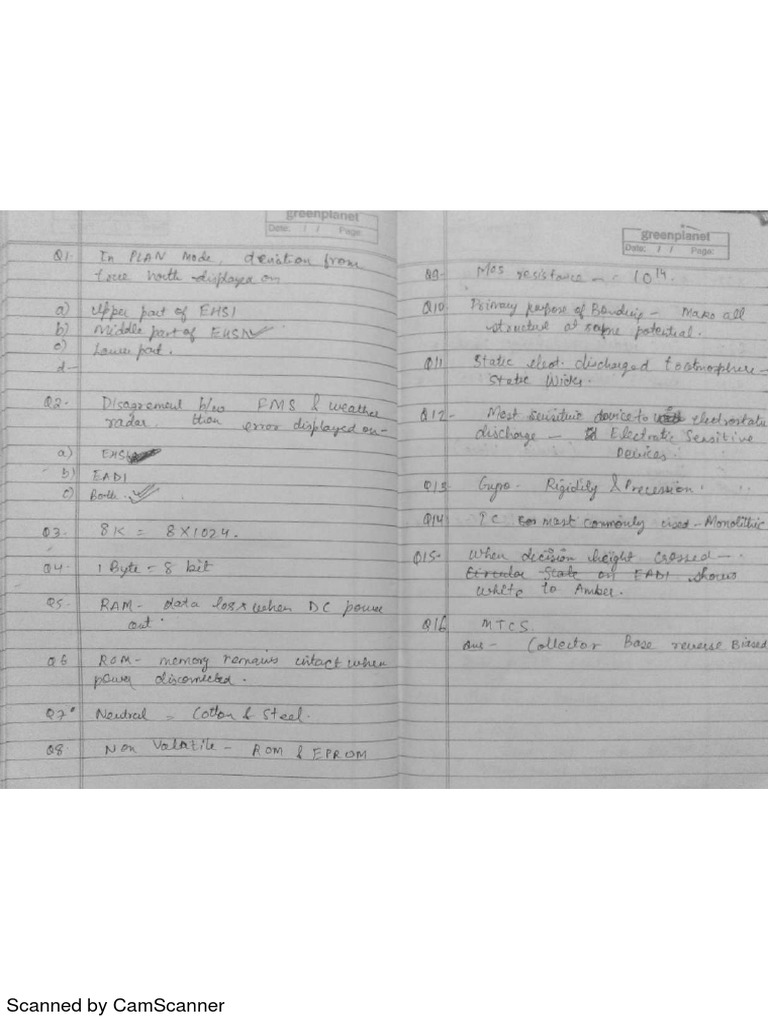 greenplanet
Date: / / Page:
Q1. In PLAN Mode, deviation from
true North displayed on
a) Upper part of EHSI
b) Middle part of EHSI
c) Lower part.
d-
Q2. Disagrement b/w FMS & weather
radar, then error displayed on-
a) EHSI
b) EADI
c) Both.
Q3. 8K = 8X1024.
Q4. 1 Byte = 8 bit
Q5. RAM- data lost when DC power
out.
Q6 ROM- memory remains intact when
power disconnected.
Q7. Neutral = Cotton & Steel.
Q8. Non Volatile - ROM & EPROM
greenplanet
Date: / / Page:
Q9- Mos resistance - 10¹⁴.
Q10 Primary purpose of Bonding - Make all
structure at same potential.
Q11 Static elect. discharged to atmosphere-
Static Wicks.
Q12- Most sensitive device to electrostatic
discharge - Electrostatic Sensitive
Devices.
Q13 Gyro. Rigidity & Precession.
Q14 IC most commonly used - Monolithic
Q15- When decision height crossed -
Circular State on EADI shows
white to Amber.
Q16 MTCS.
Ans- Collector Base reverse Biased
Scanned by CamScanner